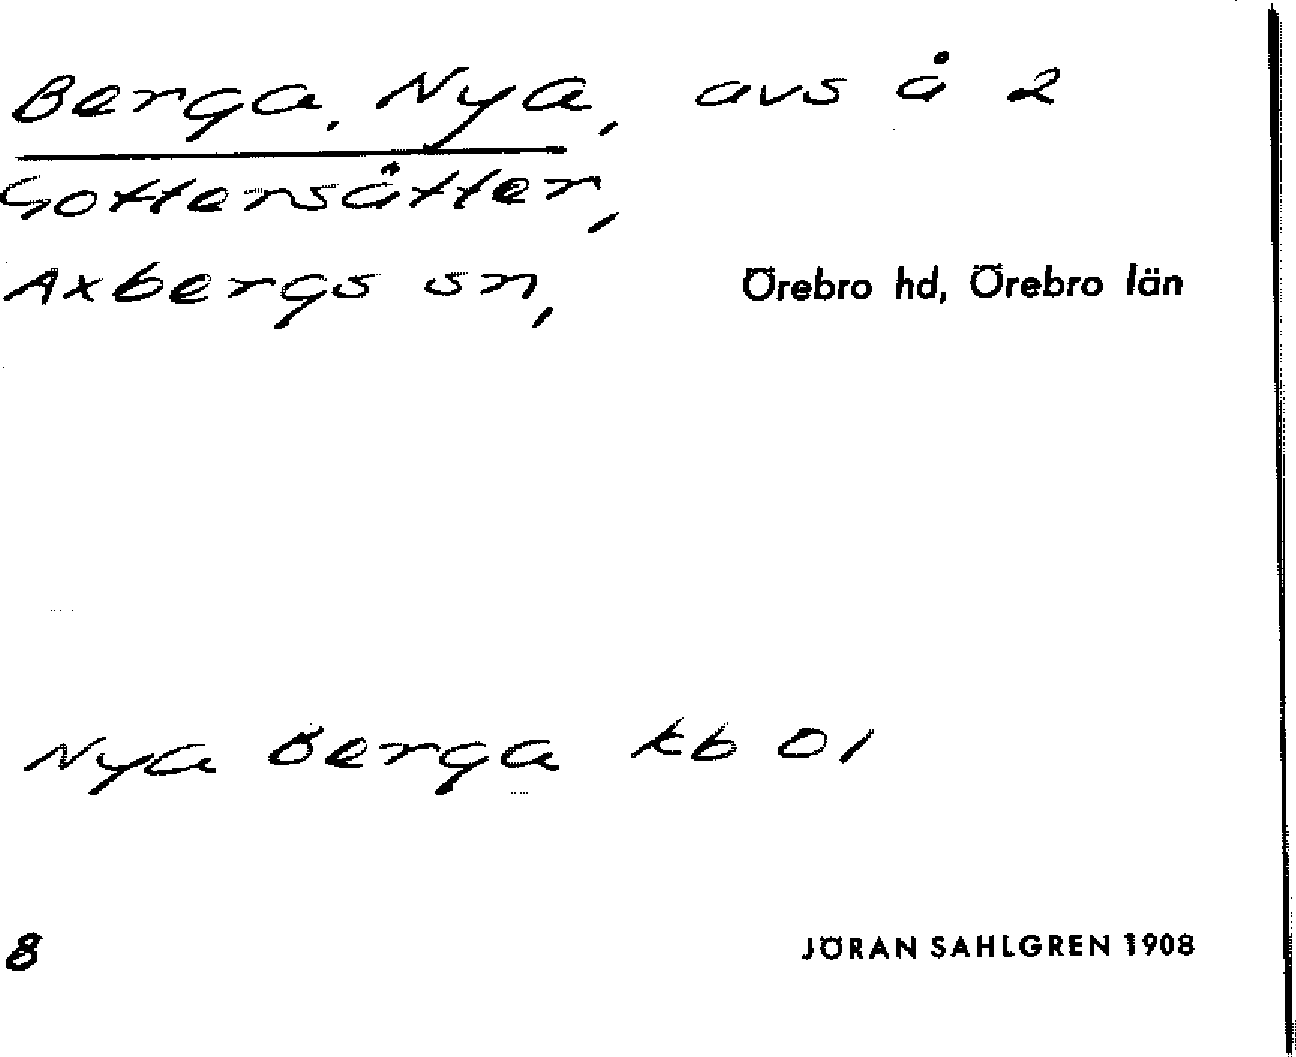 Berga, Nya, avs å 2
Gottersätter,
Axbergs sn, Örebro hd, Örebro län
Nya Berga kb 01
8
JÖRAN SAHLGREN 1908